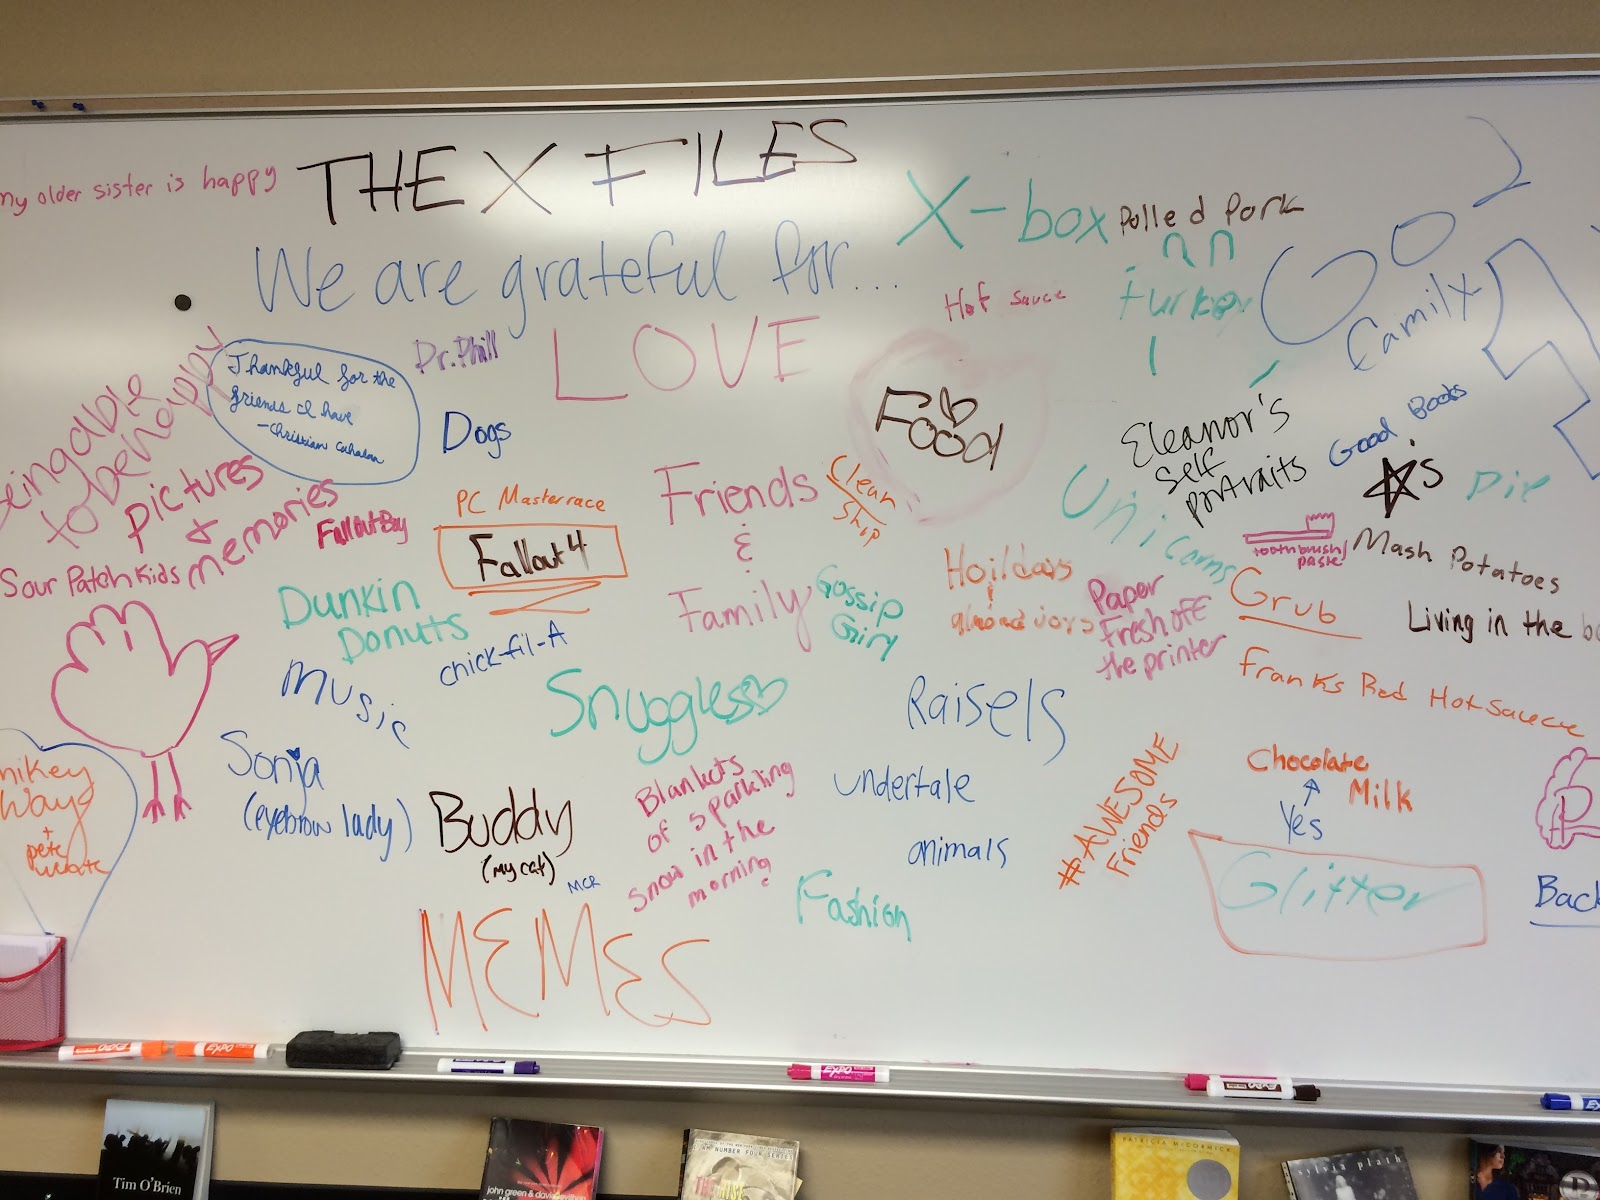 my older sister is happy
THE X FILES
We are grateful for...
X-box
Pulled Pork
Hot sauce
turkey
Family
LOVE
Dr. Phill
Thankful for the
friends I have
-Christian
Dogs
Food
being able
to be happy
pictures
&
memories
Sour Patch Kids
Fallout Boy
PC Masterrace
Fallout 4
Friends
&
Family
Clean
Ship
Eleanor's
self
portraits
Good Books
Unicorns
Pie
toothbrush/
paste
Mash Potatoes
Dunkin
Donuts
chick-fil-A
Gossip
Girl
Hoildays
almond joys
Paper
Fresh off
the printer
Grub
Living in the
Franks Red Hot Saucce
music
Snuggles
Raisels
mikey
Way
+
pete
Sonja
(eyebrow lady)
Buddy
(my cat)
MCR
Blankets
of sparkling
snow in the
morning
undertale
animals
Fashion
#AWESOME
Friends
Chocolate
Milk
Yes
Glitter
Back
MEMES
EXPO
EXPO
EXPO
Tim O'Brien
john green & david levithan
NUMBER FOUR
PATRICIA McCORMICK
sylvia plath